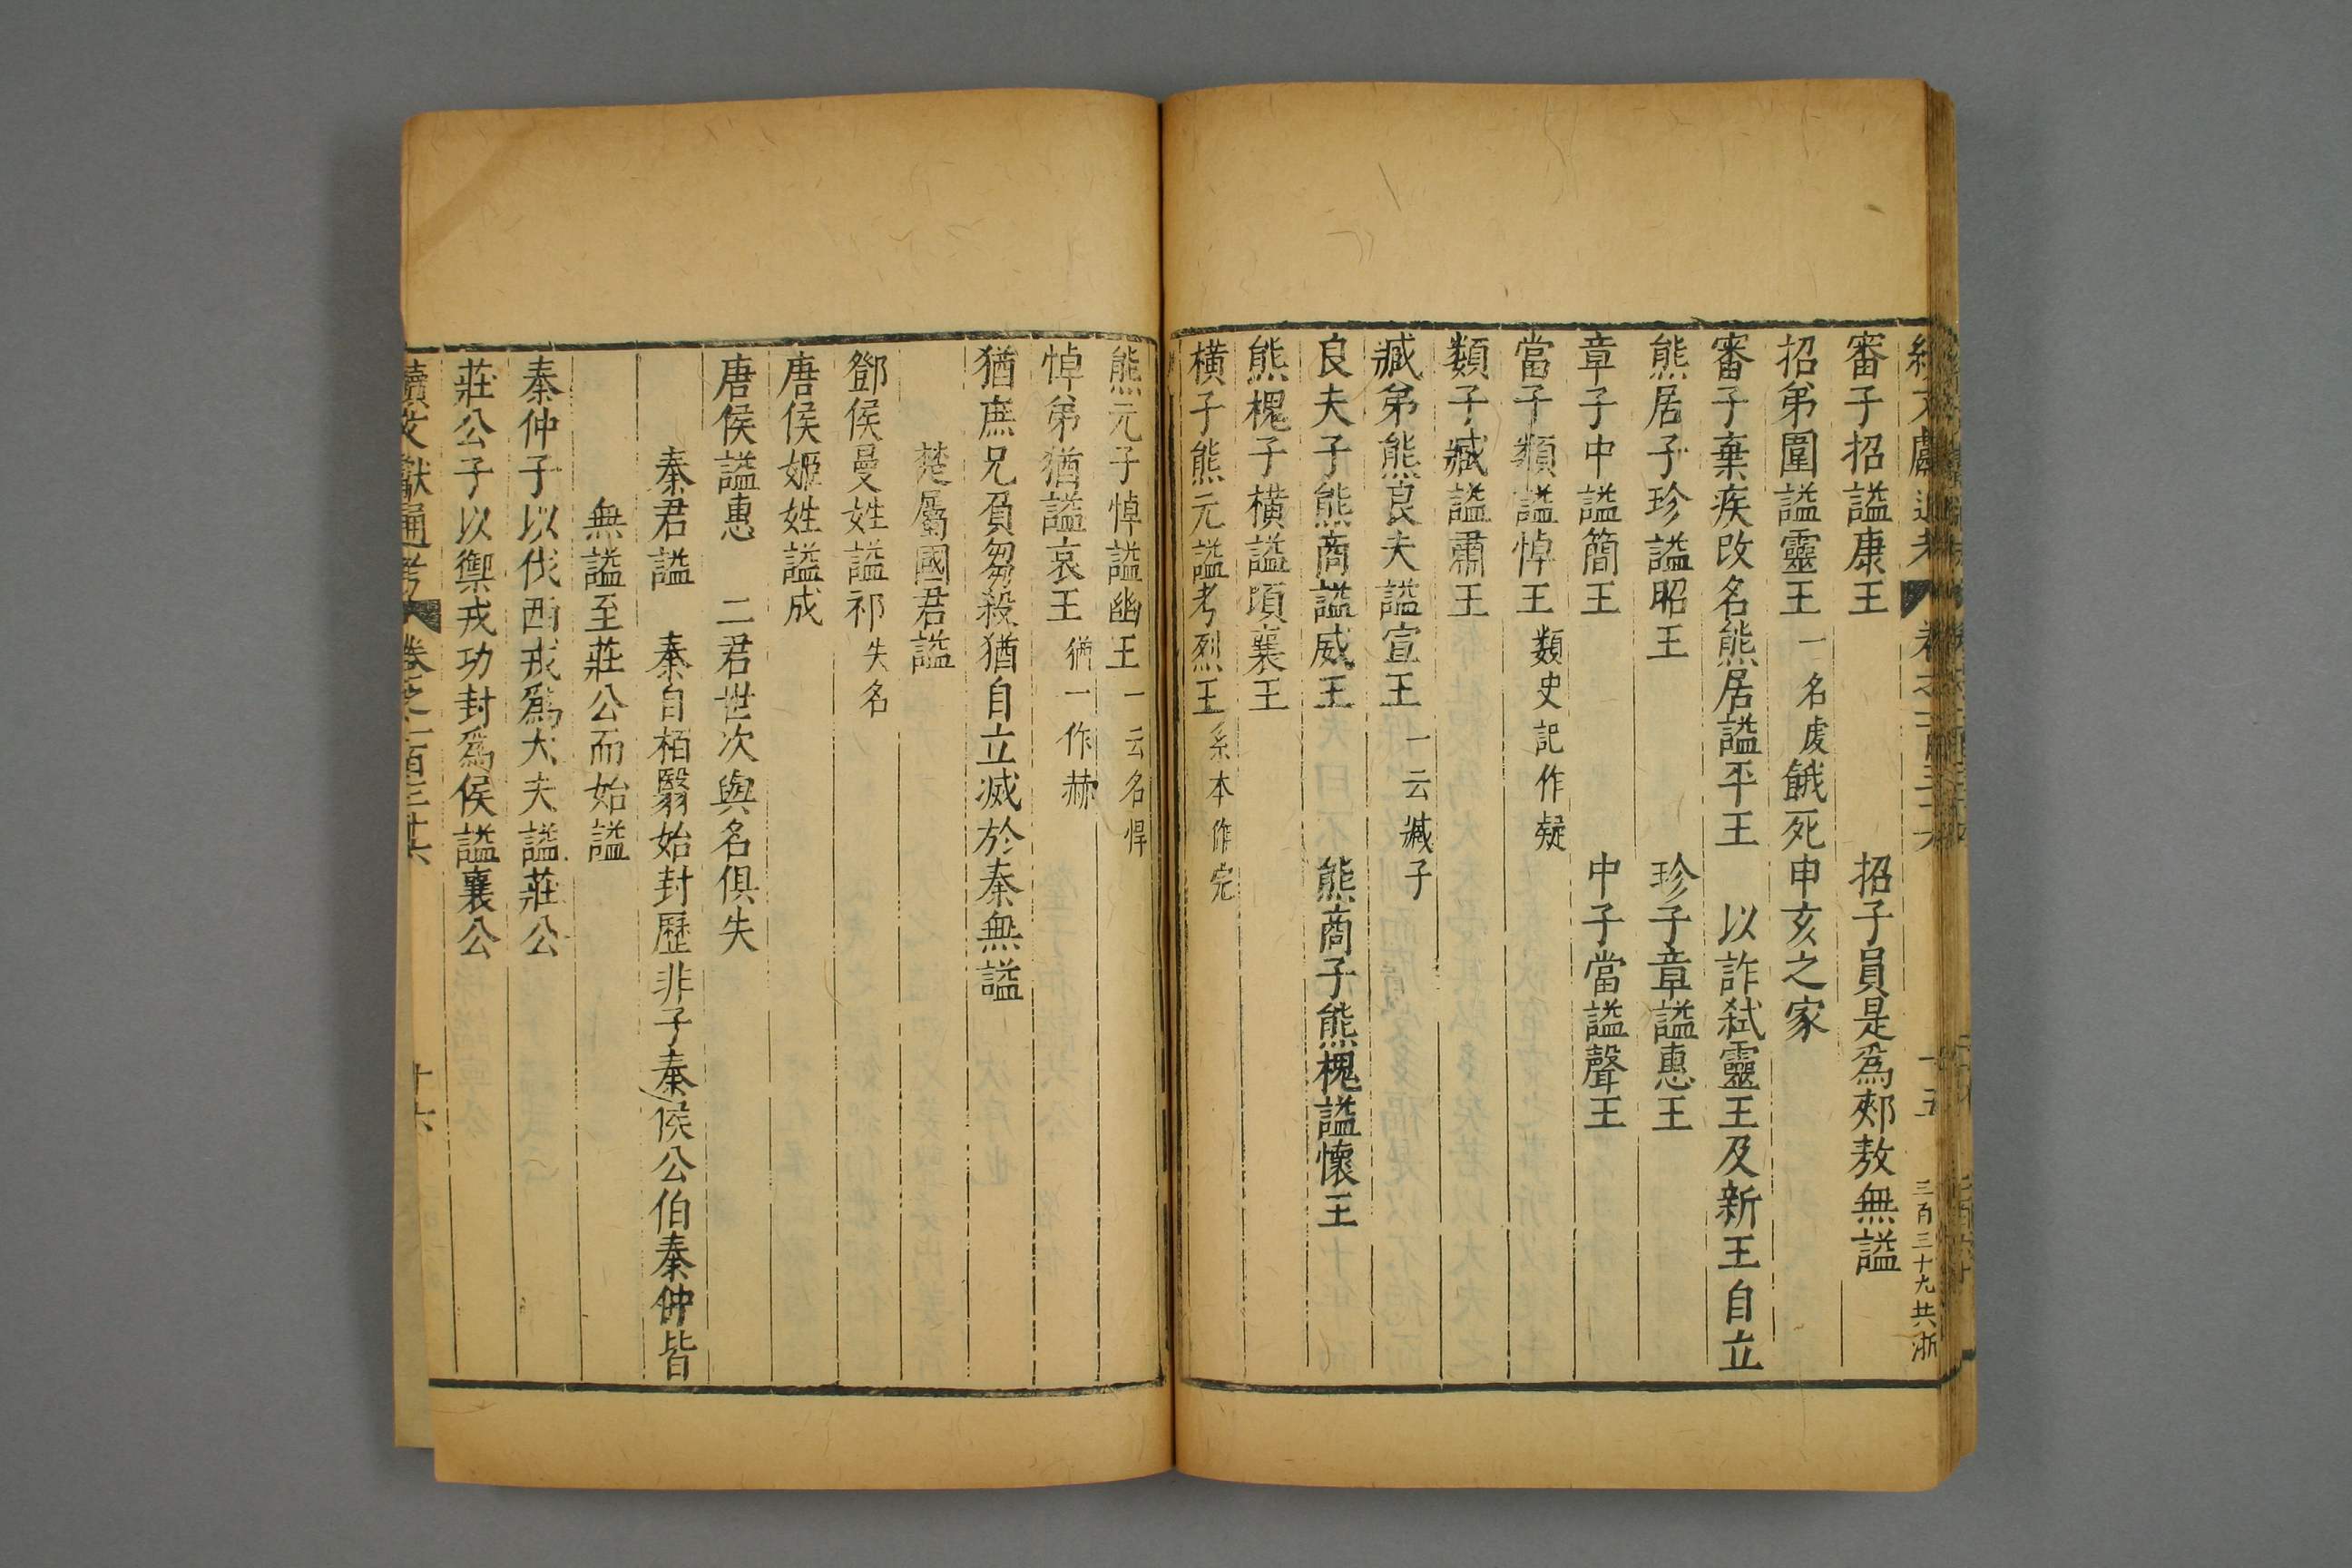 審子招謚康王 招子員是爲郟敖無謚
招弟圍謚靈王 一名虔 餓死申亥之家
審子棄疾改名熊居謚平王 以詐弑靈王及新王自立
熊居子珍謚昭王 珍子章謚惠王
章子中謚簡王 中子當謚聲王
當子類謚悼王 類史記作疑
類子臧謚肅王
臧弟熊良夫謚宣王 一云臧子
良夫子熊商謚威王 熊商子熊槐謚懷王
熊槐子橫謚頃襄王
橫子熊元謚考烈王 系本作完
熊元子悼謚幽王 一云名悍
悼弟猶謚哀王 猶一作赫
猶庶兄負芻殺猶自立滅於秦無謚
楚屬國君謚
鄧侯曼姓謚祁 失名
唐侯姬姓謚成
唐侯謚惠 二君世次與名俱失
秦君謚 秦自栢翳始封歷非子秦侯公伯秦仲皆
無謚至莊公而始謚
秦仲子以伐西戎爲大夫謚莊公
莊公子以禦戎功封爲侯謚襄公
續文獻通考 卷之一百三十六 十六